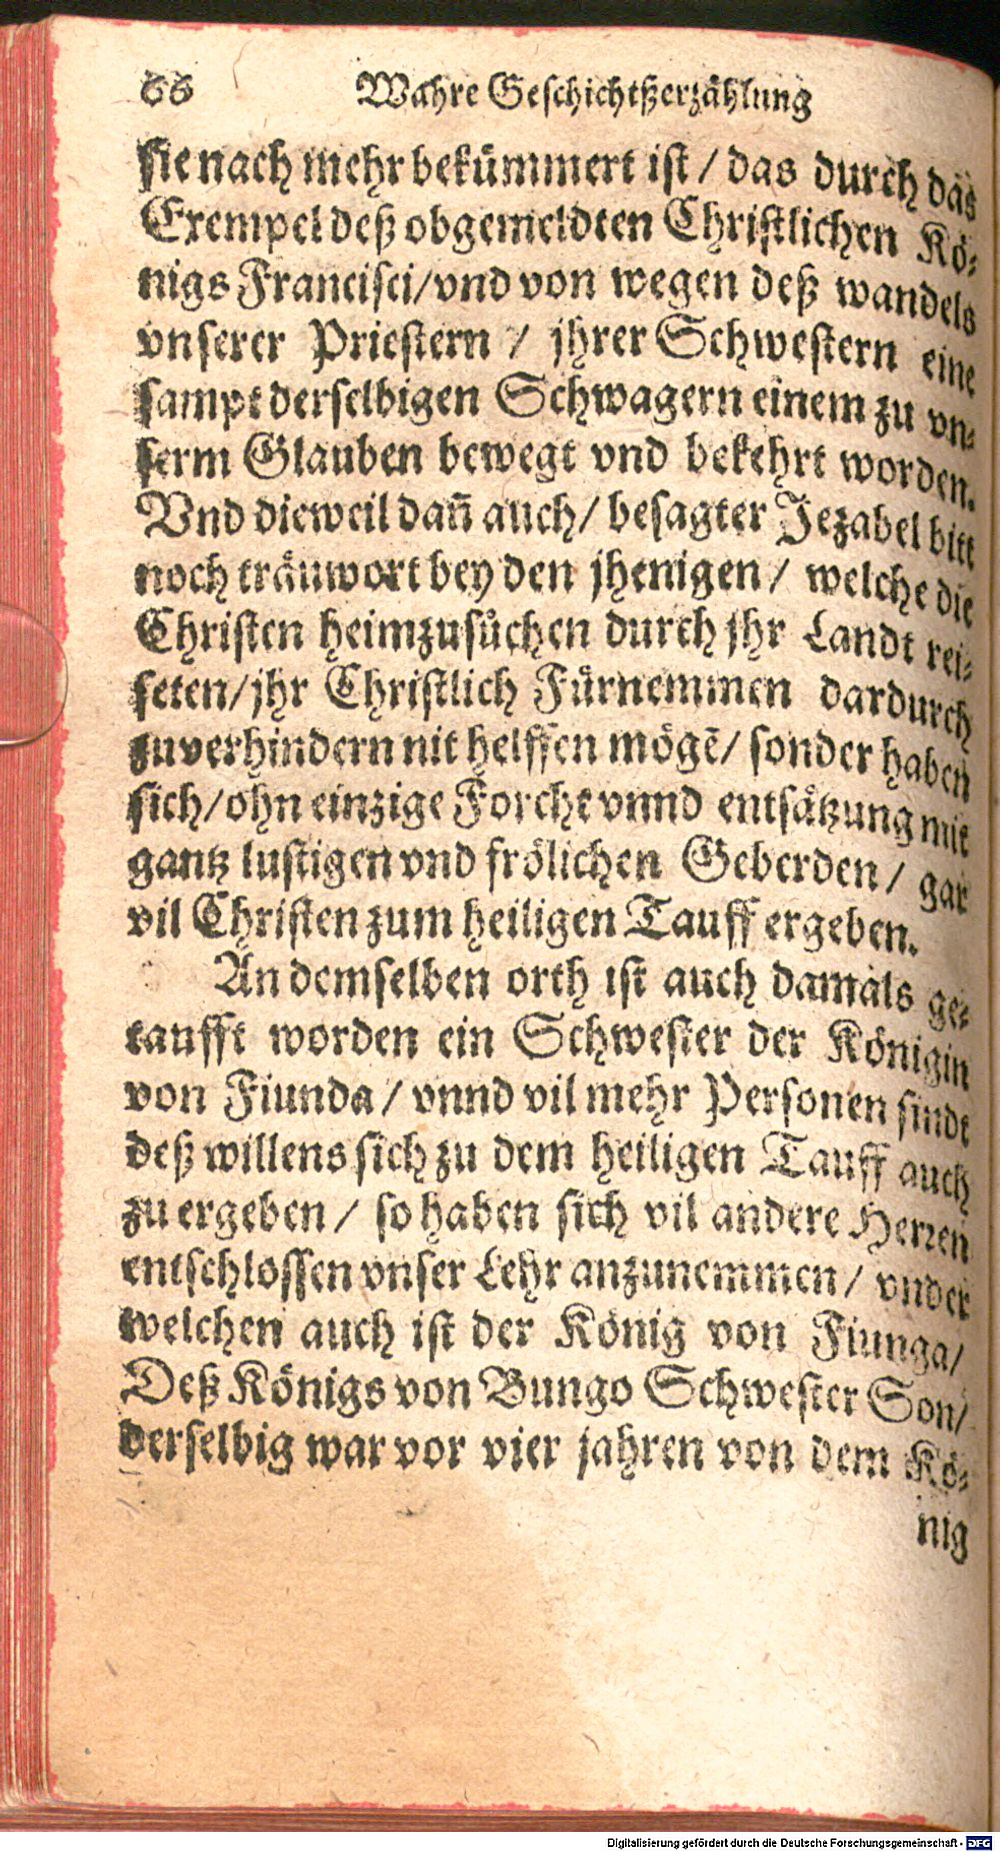 66 Wahre Geschichtßerzählung
sie nach mehr bekümmert ist / das durch das
Exempel deß obgemeldten Christlichen Kö⸗
nigs Francisci / vnd von wegen deß wandels
vnserer Priestern / jhrer Schwestern eine
sampt derselbigen Schwagern einem zu vn⸗
serm Glauben bewegt vnd bekehrt worden.
Vnd dieweil dañ auch / besagter Jezabel bitt
noch träuwort bey den jhenigen / welche die
Christen heimzusůchen durch jhr Landt rei⸗
seten / jhr Christlich Fürnemmen dardurch
zuverhindern nit helffen mögẽ / sonder haben
sich / ohn einzige Forcht vnnd entsätzung mit
gantz lustigen vnd frölichen Geberden / gar
vil Christen zum heiligen Tauff ergeben.
An demselben orth ist auch damals ge⸗
taufft worden ein Schwester der Königin
von Fiunda / vnnd vil mehr Personen sindt
deß willens sich zu dem heiligen Tauff auch
zu ergeben / so haben sich vil andere Herren
entschlossen vnser Lehr anzunemmen / vnder
welchen auch ist der König von Fiunga /
Deß Königs von Bungo Schwester Son /
derselbig war vor vier jahren von dem Kö⸗
nig
Digitalisierung gefördert durch die Deutsche Forschungsgemeinschaft - DFG